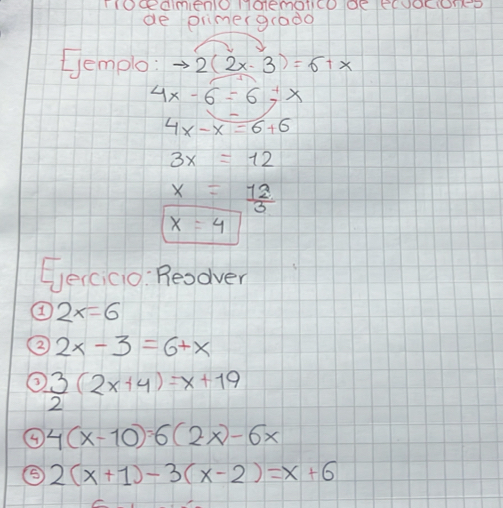 Procedimiento Matematico de ecuaciones
de primer grado
Ejemplo: → 2(2x - 3) = 6 + x
4x - 6 = 6 + x
4x - x = 6 + 6
3x = 12
x = 12/3
x = 4
Ejercicio: Resolver
① 2x = 6
② 2x - 3 = 6 + x
③ 3/2 (2x + 4) = x + 19
④ 4(x - 10) = 6(2x) - 6x
⑤ 2(x + 1) - 3(x - 2) = x + 6